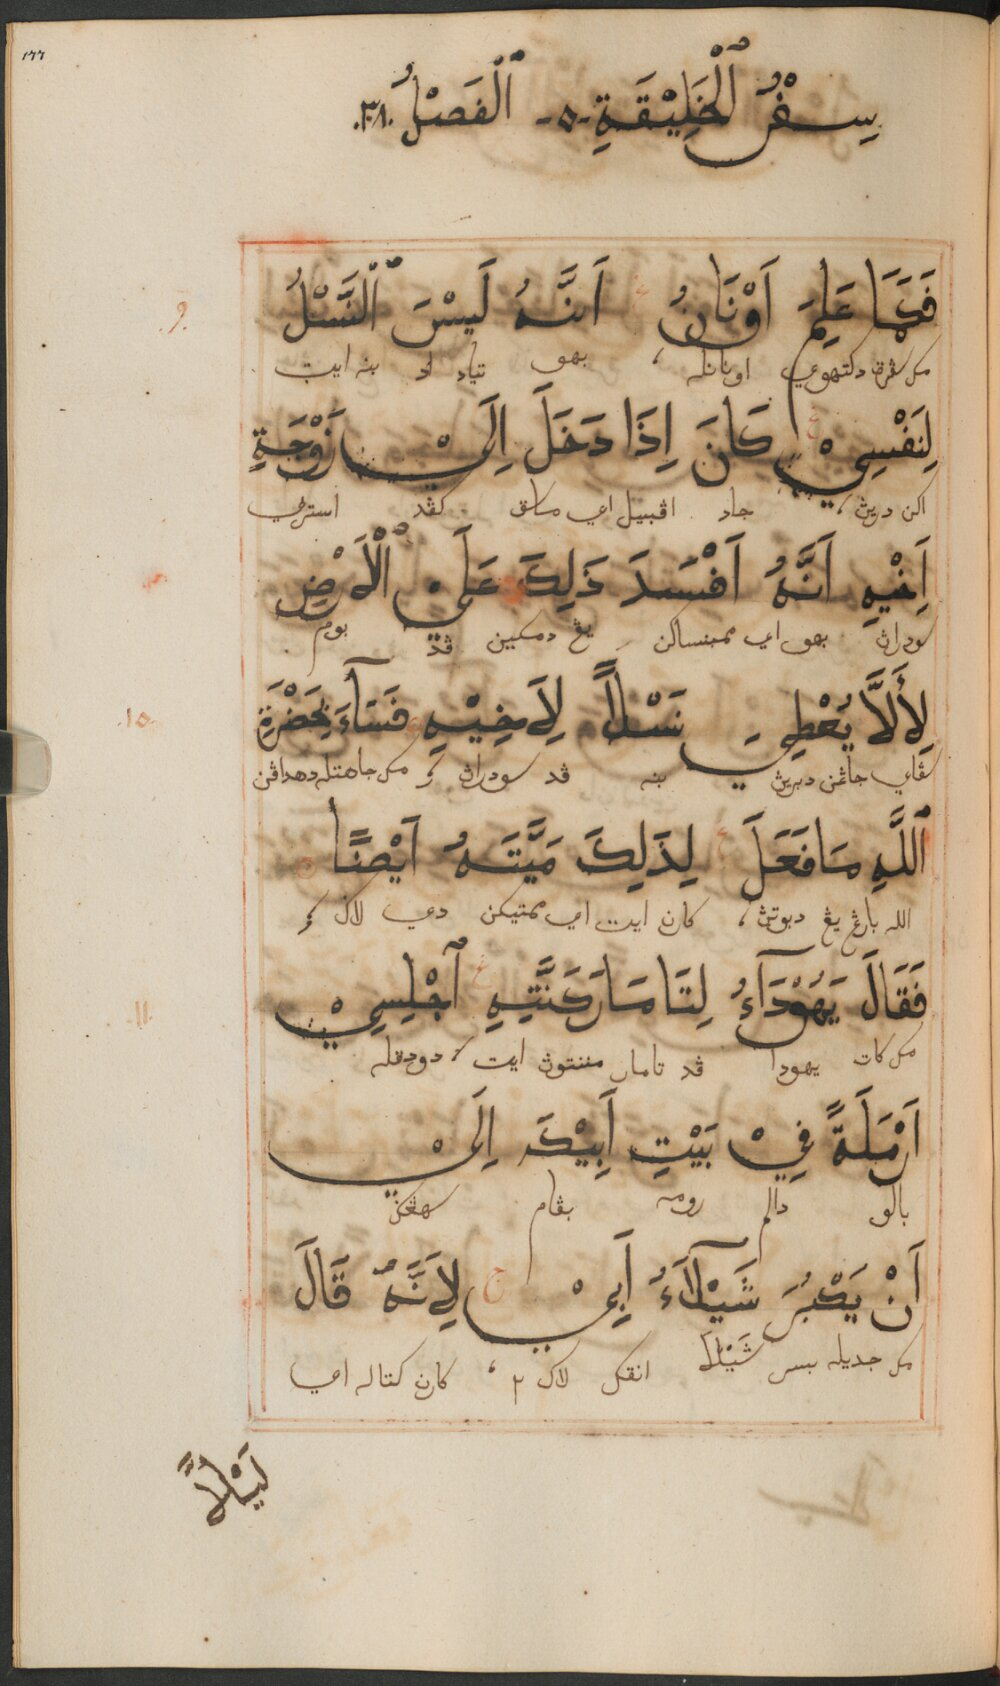 ١٦٦
سِفْرُ ٱلْخَلِيْقَةِ -٥- ٱلْفَصْلُ .٣٨.
فَلَمَّا عَلِمَ اَوْنَانُ اَنَّهُ لَيْسَ ٱلنَّسْلُ
٩
مک سڤرة دکتهوي اونانله، بهو تياد اد بنه ايت
لِنَفْسِيْهِ كَانَ اِذَا دَخَلَ اِلَيْ زَوْجَةِ
اکن درين، جاد اڤبيل اي ماسق کڤد استري
اَخِيْهِ اَنَّهُ اَفْسَدَ ذَلِكَ عَلَيْ ٱلْاَرْضِ
سودران بهو اي ممبنساکن يڠ دمکين ڤد بوم
لِأَلَّا يُعْطِي نَسْلاً لِاَخِيْهِ فَسَآءَ بِحَضْرَةِ
١٠
سڤاي جاڠن دبرين بنه ڤد سودران مک جاهتله دهداڤن
ٱللَّهِ مَا فَعَلَ لِذَلِكَ مَيَّتَهُ اَيْضًا
الله بارڠ يڠ دبوتن، کارن ايت اي ممتيکن دي لاݢ
فَقَالَ يَهُوْدَآءُ لِتَامَارَ كَنَّتِهِ ٱجْلِسِيْ
١١
مک کات يهودا ڤد تامار مننتون ايت، دودقله
اَرْمَلَةً فِيْ بَيْتِ اَبِيْكَ اِلَيْ
بالو دالم رومه بڤام سهڠݢ
اَنْ يَكْبُرَ شَيْلَآءُ اَبِيْ لِاَنَّهُ قَالَ
مک جديله بسر شَيْلَا انقکو لاک ٢، کارن کتاله اي
لَيْلَاً